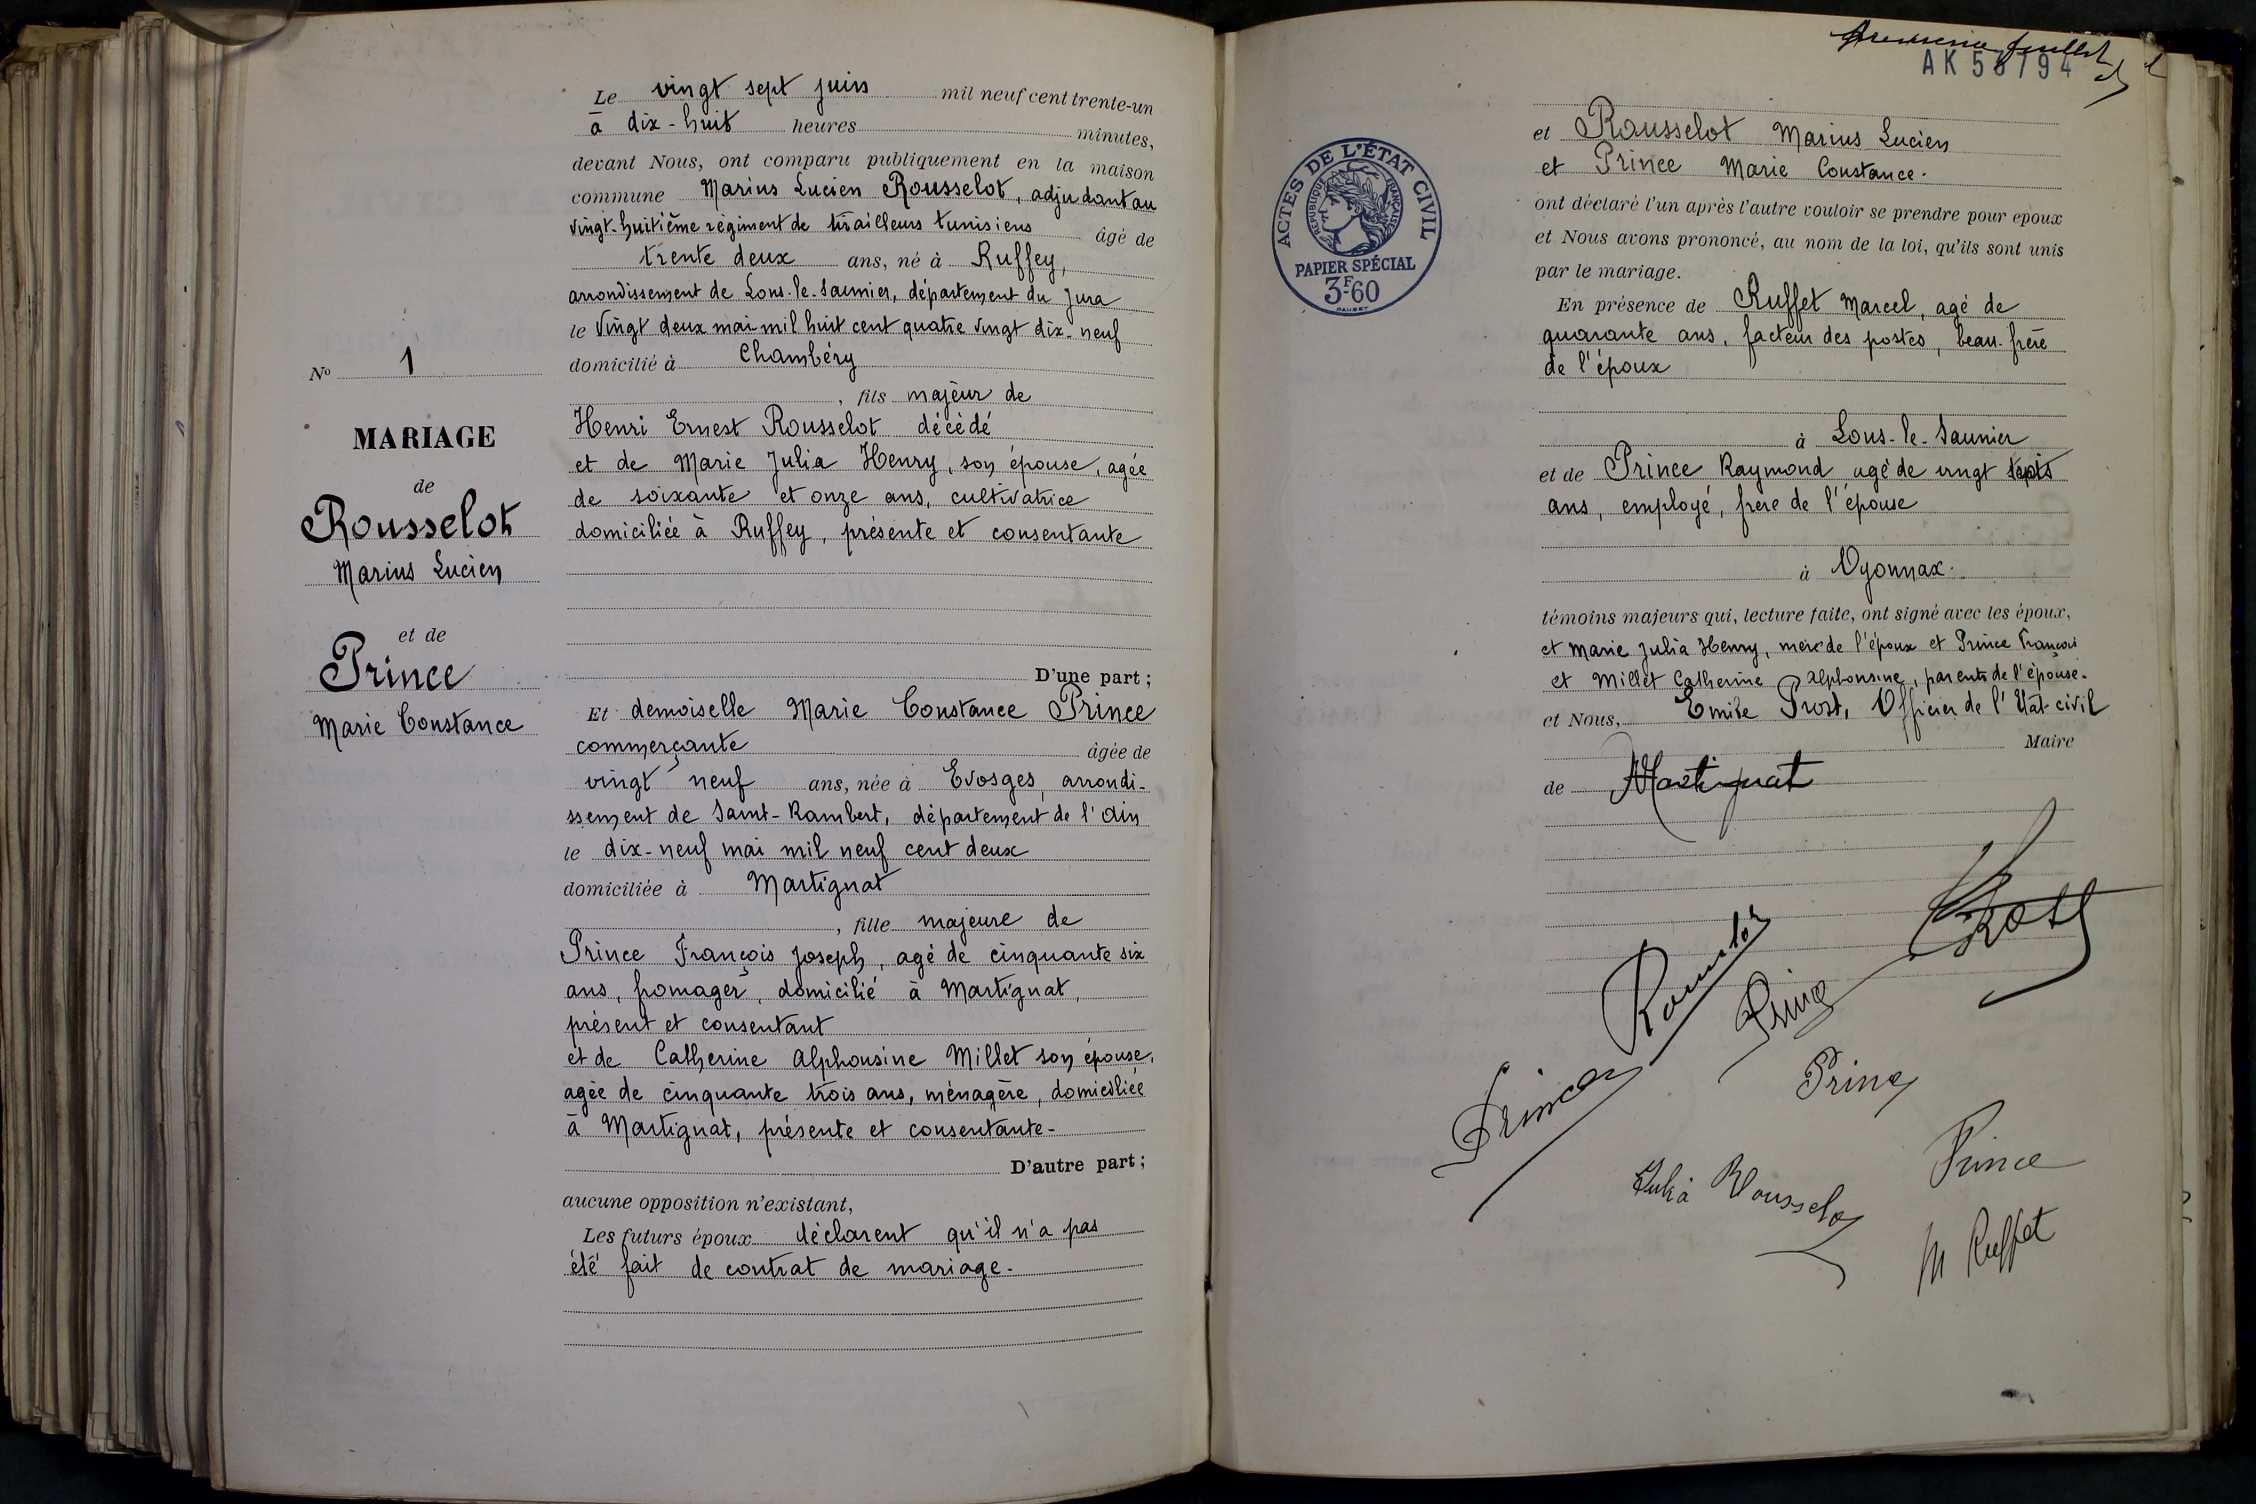 Le vingt sept juin mil neuf cent trente-un
à dix-huit heures minutes,
devant Nous, ont comparu publiquement en la maison
commune Marius Lucien Rousselot, adjudant au
vingt-huitième régiment de tirailleurs tunisiens âgé de
trente deux ans, né à Ruffey,
arrondissement de Lons-le-Saunier, département du Jura
le vingt deux mai mil huit cent quatre vingt dix-neuf
domicilié à Chambéry
, fils majeur de
Henri Ernest Rousselot décédé
et de Marie Julia Henry, son épouse, agée
de soixante et onze ans, cultivatrice
domiciliée à Ruffey, présente et consentante
D'une part;
No 1
MARIAGE
de
Rousselot
Marius Lucien
et de
Prince
Marie Constance
Et demoiselle Marie Constance Prince
commerçante âgée de
vingt neuf ans, née à Evosges, arrondi-
ssement de Saint-Rambert, département de l'Ain
le dix-neuf mai mil neuf cent deux
domiciliée à Martignat
, fille majeure de
Prince François Joseph, agé de cinquante six
ans, fromager, domicilié à Martignat,
présent et consentant
et de Catherine Alphonsine Millet son épouse,
agée de cinquante trois ans, ménagère, domiciliée
à Martignat, présente et consentante-
D'autre part;
aucune opposition n'existant,
Les futurs époux déclarent qu'il n'a pas
été fait de contrat de mariage.
feuillet
AK 58794
ACTES DE L'ÉTAT CIVIL
RÉPUBLIQUE FRANÇAISE
PAPIER SPÉCIAL
3F60
et Rousselot Marius Lucien
et Prince Marie Constance.
ont déclaré l'un après l'autre vouloir se prendre pour epoux
et Nous avons prononcé, au nom de la loi, qu'ils sont unis
par le mariage.
En présence de Ruffet Marcel, agé de
quarante ans, facteur des postes, beau-frère
de l'époux
à Lons-le-Saunier
et de Prince Raymond agé de vingt
ans, employé, frère de l'épouse
à Oyonnax.
témoins majeurs qui, lecture faite, ont signé avec les époux,
et Marie Julia Henry, mère de l'époux et Prince François
et Millet Catherine Alphonsine, parents de l'épouse.
et Nous, Emile Prost, Officier de l'Etat-civil
Maire
de Martignat
Prost
Rousselot
Prince
Prince
Prince
Prince
Julia Rousselot
M Ruffet